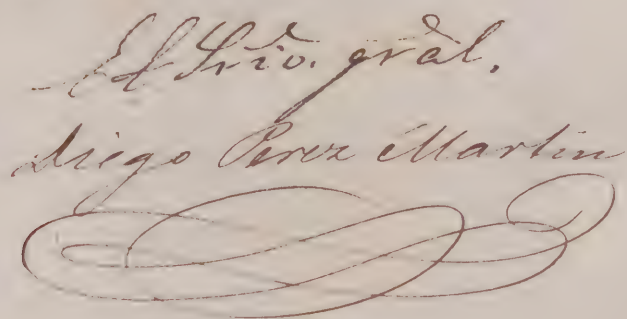 El Srio. gràl.
Diego Perez Martin